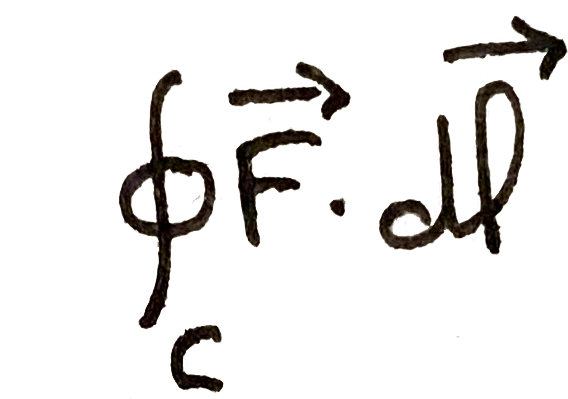 $\oint_C \vec{F} \cdot \vec{dl}$